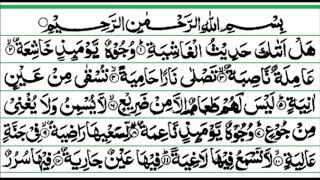 بِسْمِ اللهِ الرَّحْمٰنِ الرَّحِيْمِ ۝
هَلْ اَتٰىكَ حَدِيْثُ الْغَاشِيَةِ ۝۱ وُجُوْهٌ يَّوْمَئِذٍ خَاشِعَةٌ ۝۲
عَامِلَةٌ نَّاصِبَةٌ ۝۳ تَصْلٰى نَارًا حَامِيَةً ۝۴ تُسْقٰى مِنْ عَيْنٍ
اٰنِيَةٍ ۝۵ لَيْسَ لَهُمْ طَعَامٌ اِلَّا مِنْ ضَرِيْعٍ ۝۶ لَّا يُسْمِنُ وَلَا يُغْنِيْ
مِنْ جُوْعٍ ۝۷ وُجُوْهٌ يَّوْمَئِذٍ نَّاعِمَةٌ ۝۸ لِّسَعْيِهَا رَاضِيَةٌ ۝۹ فِيْ جَنَّةٍ
عَالِيَةٍ ۝۱۰ لَّا تَسْمَعُ فِيْهَا لَاغِيَةً ۝۱۱ فِيْهَا عَيْنٌ جَارِيَةٌ ۝۱۲ فِيْهَا سُرُرٌ